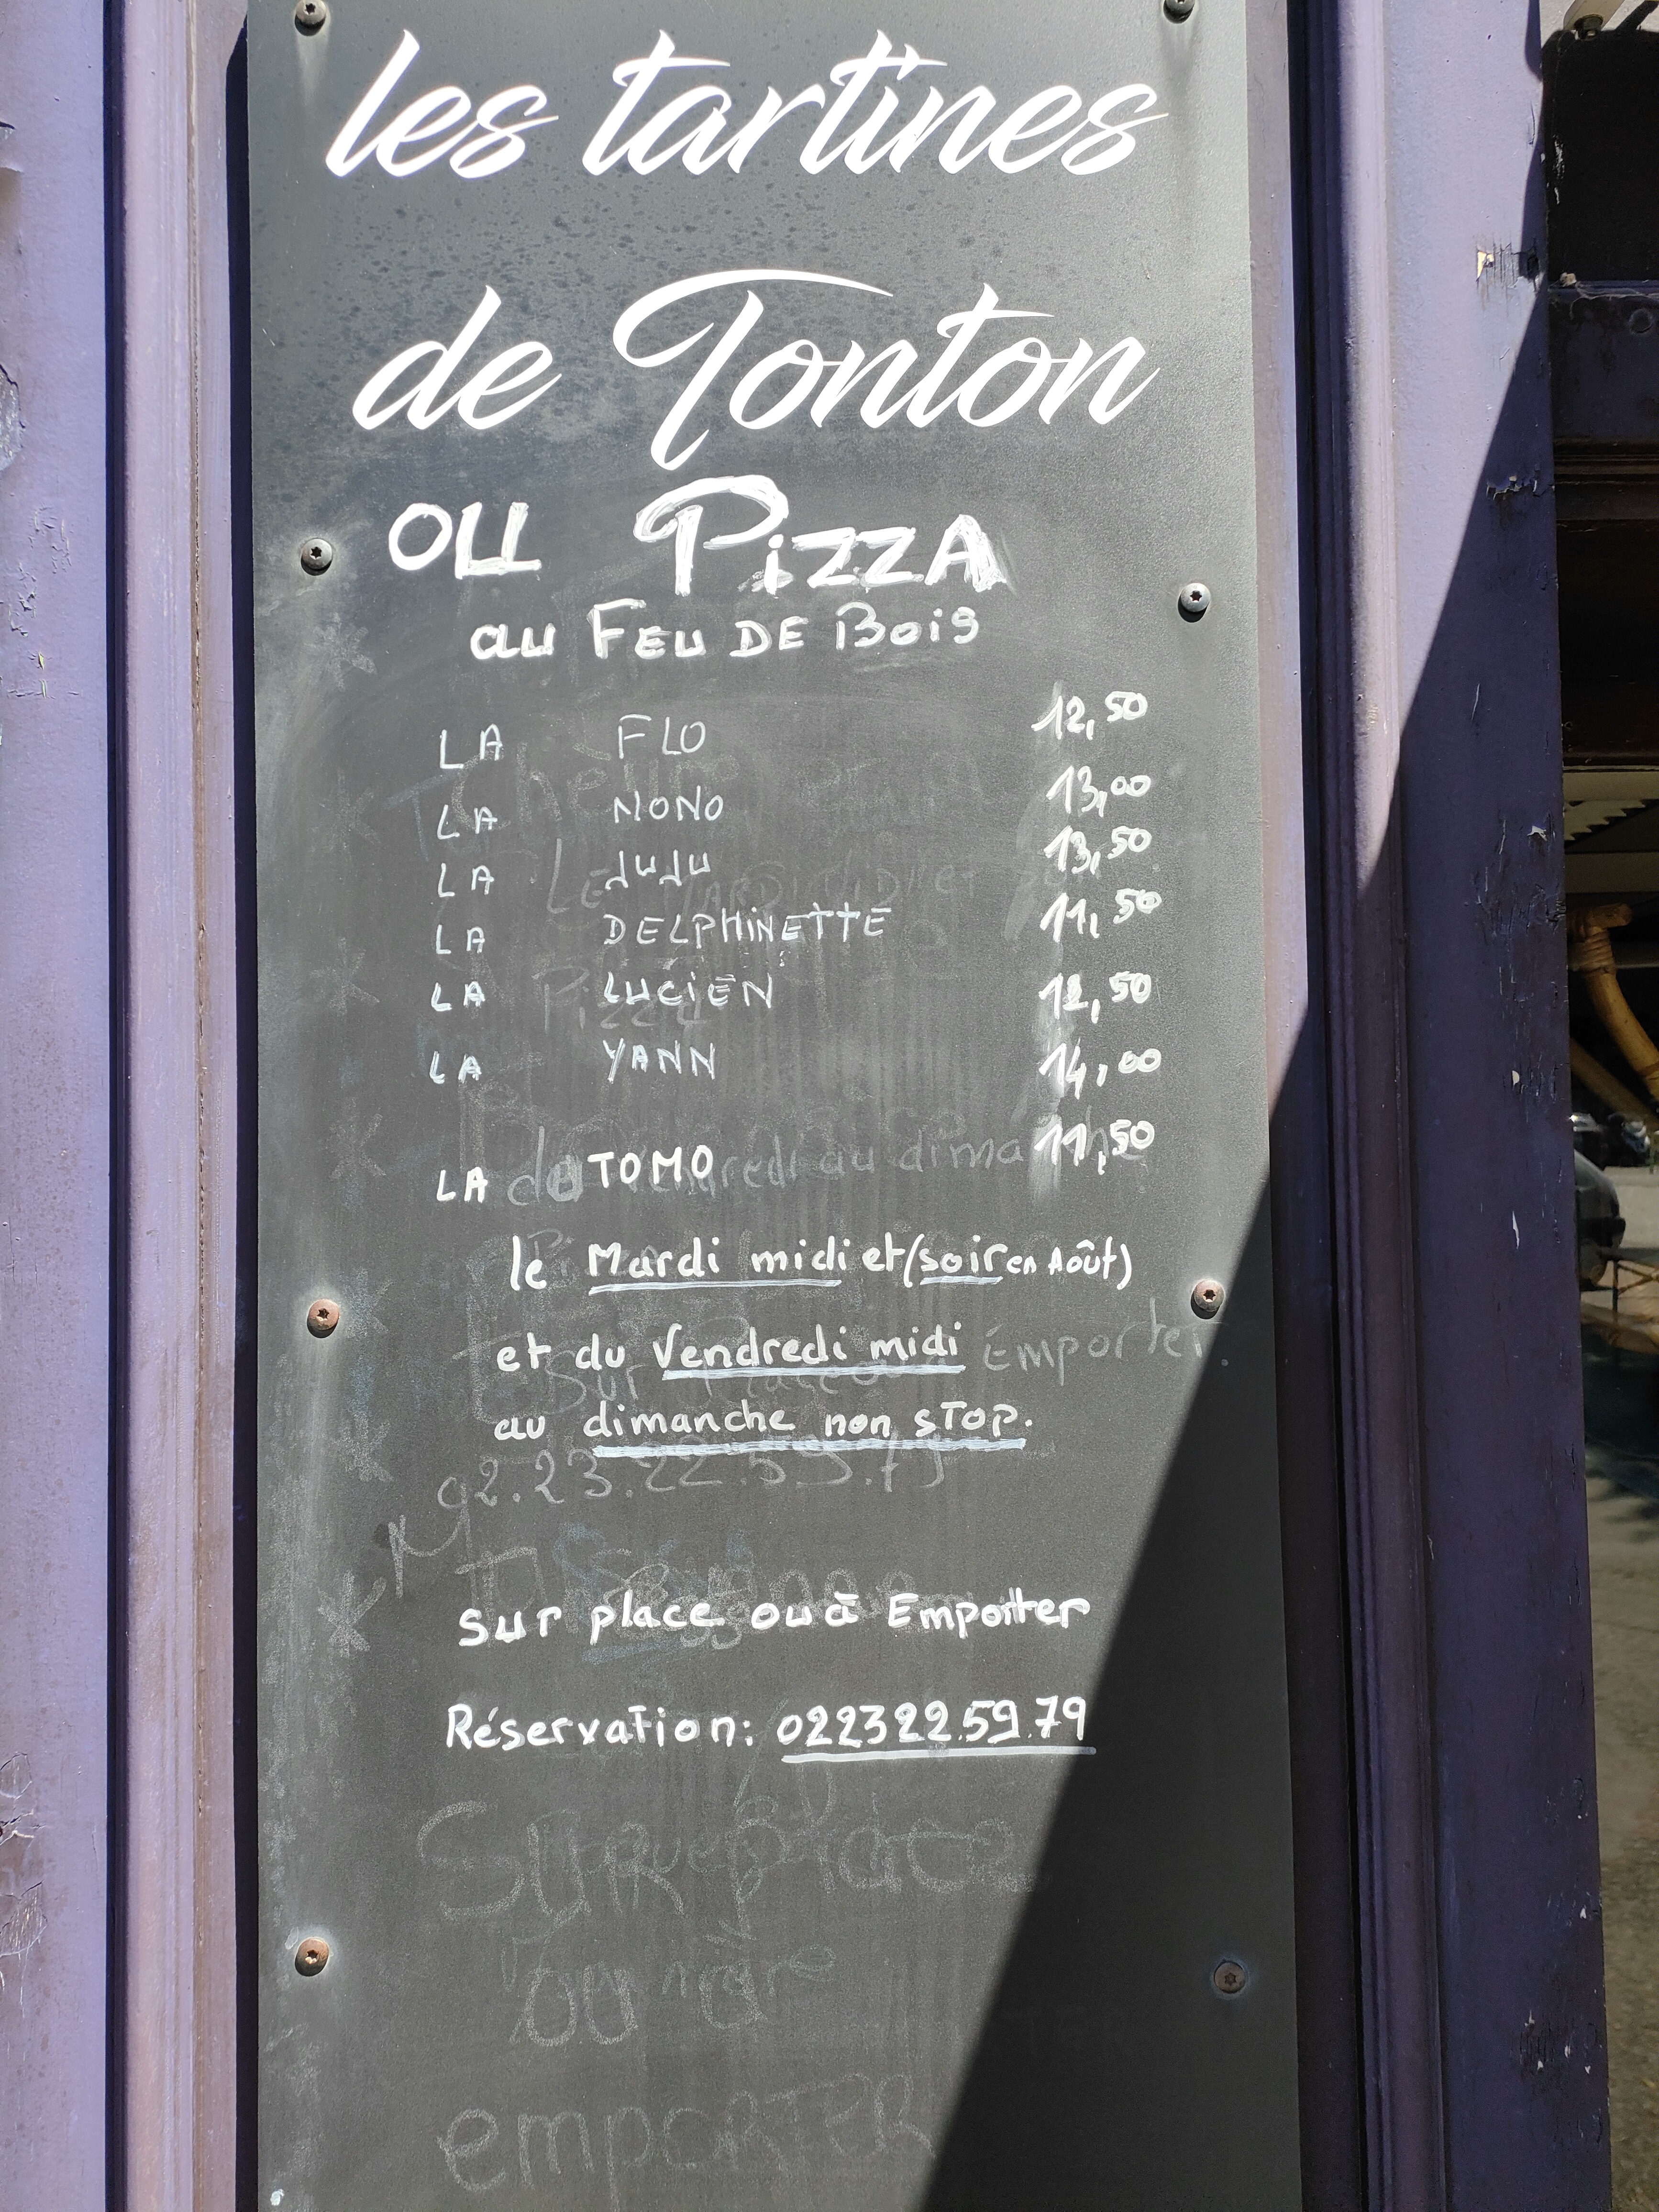 les tartines
de Tonton
ou Pizza
au Feu DE Bois
LA FLO 12,50
LA NONO 13,00
LA JUJU 13,50
LA DELPHINETTE 11,50
LA LUCIEN 12,50
LA YANN 14,00
LA TOMO 11,50
le Mardi midi et (soir en Août)
et du Vendredi midi
au dimanche non sTop.
sur place ou à Emporter
Réservation: 02 23 22.59.79
Sur place
ou à
emporTER